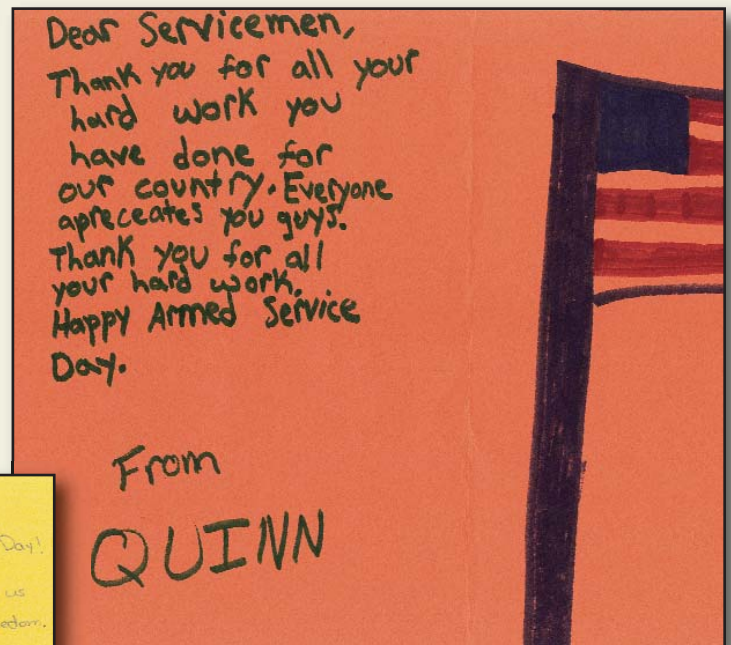 Dear Servicemen,
Thank you for all your
hard work you
have done for
our country. Everyone
apreceates you guys.
Thank you for all
your hard work.
Happy Armed Service
Day.
From
QUINN
Day!
us
edom.